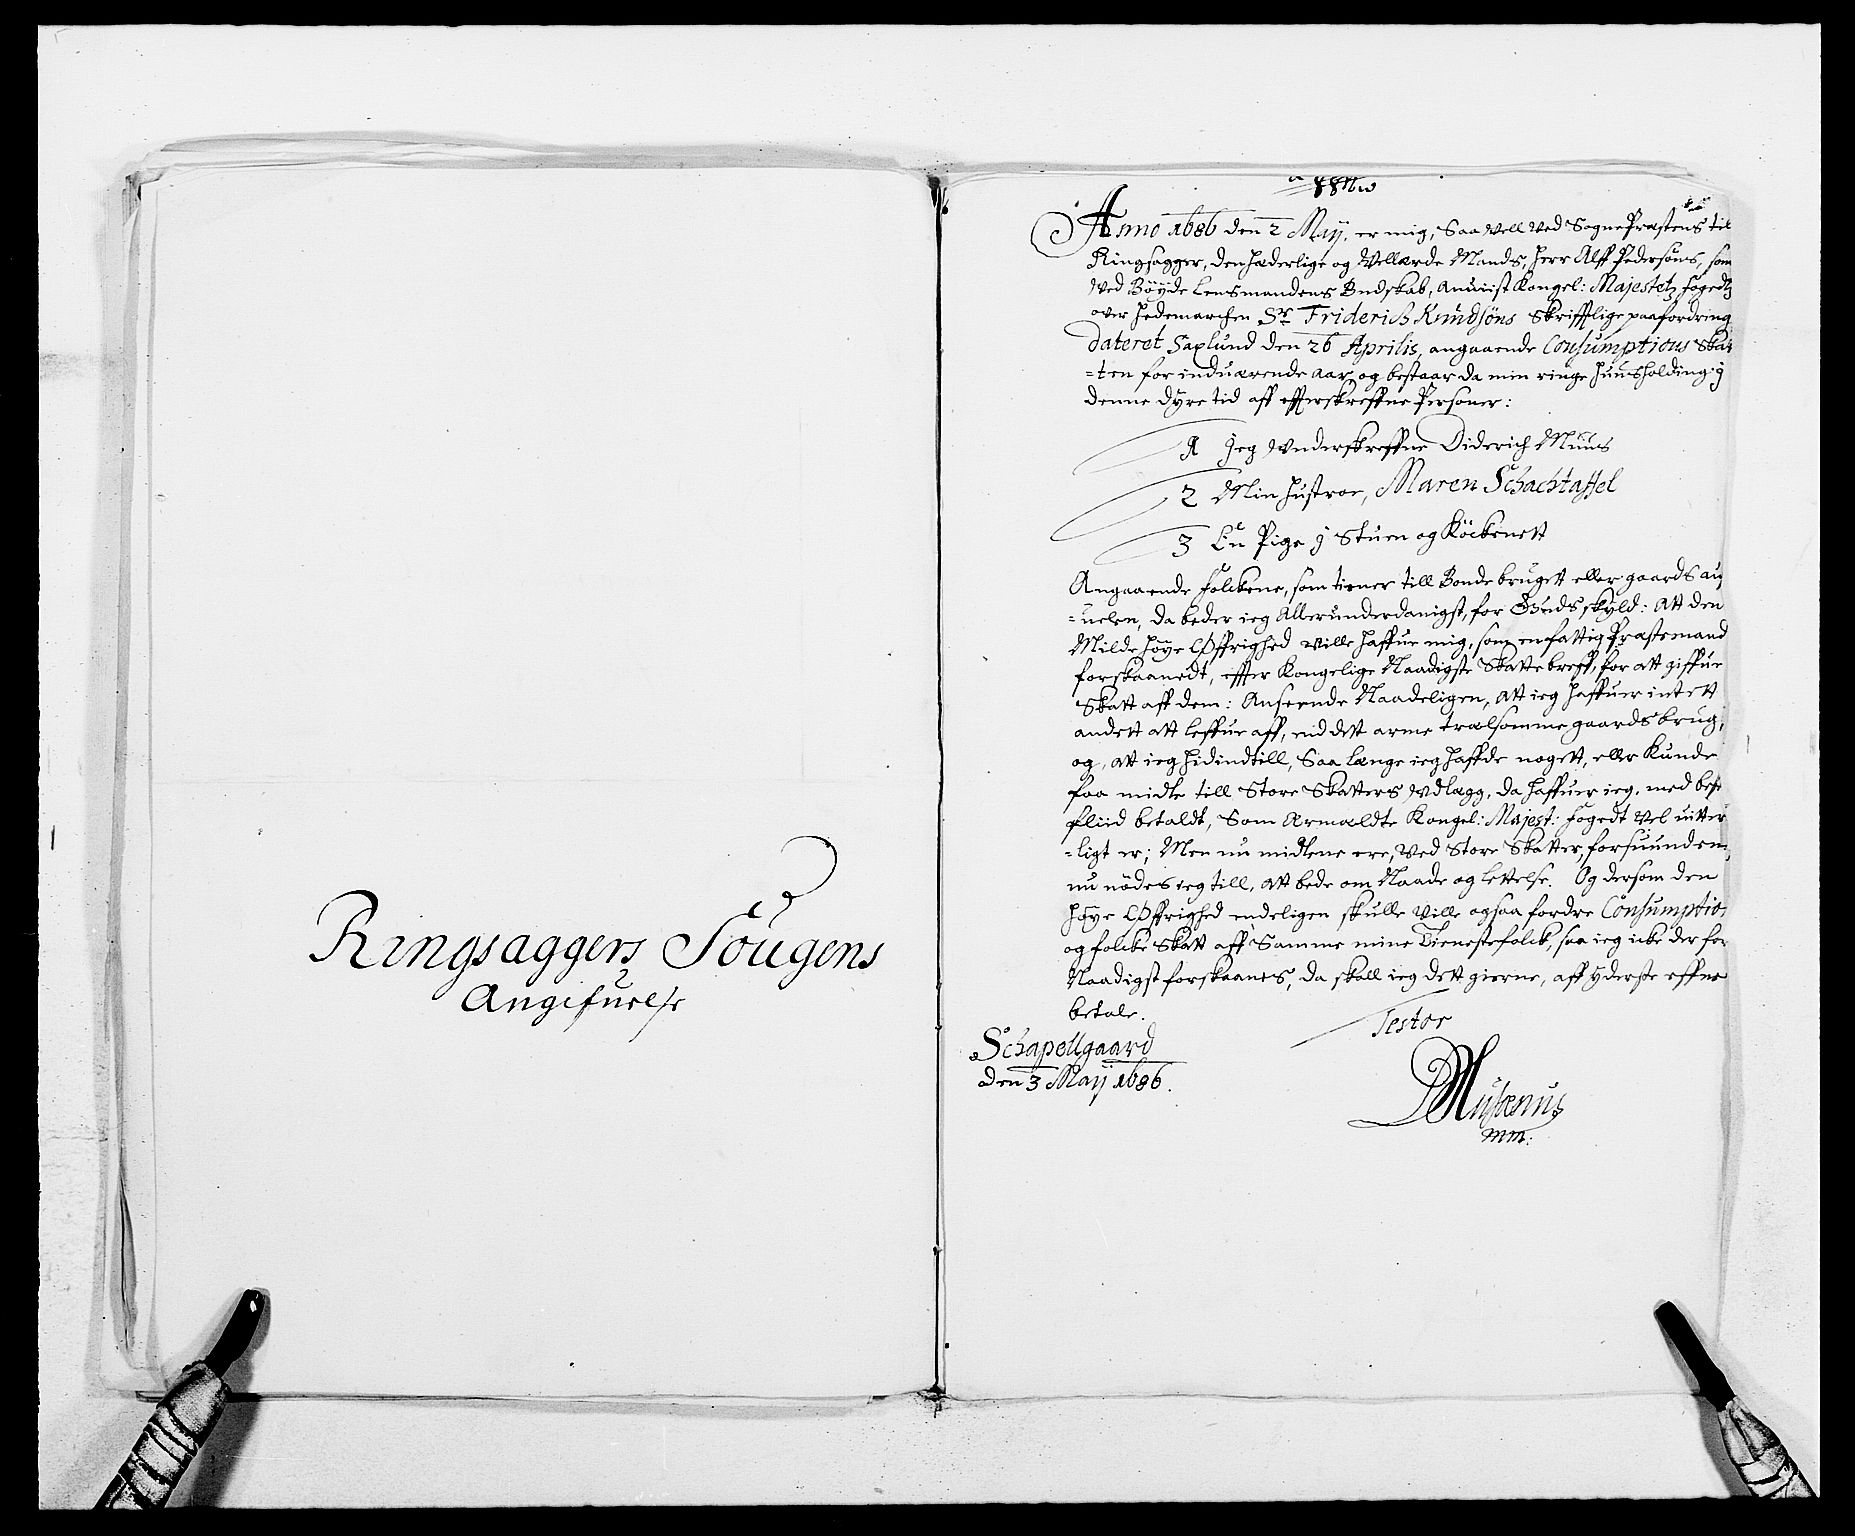 Ringsaggers Sougens
Angifuelse
Anno 1686 den 2 Maij, er mig, Saa vell ved SognePræstens til
Ringsagger, den hæderlige og Vellærde Mands, Herr Alff Pedersöns, som
ved Böyde Lensmandens Budskab, anviist Kongel: Majestetz fogedtz
over Hedemarchen Sr. Friderich Knudsöns Skrifftlige paafordring
dateret Saxlund den 26 Aprilis, angaaende Consumptions Skat
=ten for indværende aar, og bestaar da min ringe Huusholding i
denne dyre tid aff effterskreffne Personer:
1 Jeg underskreffne Diderich Muus
2 Min Hustroe, Maren Schachtaffel
3 En Pige i Stuen og Köckenett
Angaaende Folckene, som tiener till Bondebrugett eller gaards au
=uelen, da beder ieg Allerunderdanigst, for Guds skyld: Att den
Milde höye Øffrighed ville haffue mig, som en fattig Præstemand
forskaanedt, effter Kongelige Naadigste Skattebreff, for att giffue
Skatt aff dem: Anseende Naadeligen, att ieg haffuer intett
andett att leffue aff, end dett arme trælsomme gaardsbrug,
og, att ieg hidindtill, Saa længe ieg haffde nogett, eller kunde
faa midle till Store Skatters udlægg, da haffuer ieg, med best
fliid betaldt, Som ærmældte Kongel: Majest: fogedt vel uitter
=ligt er; Men nu midlene ere, ved Store Skatter, forsuunden,
nu nödes ieg till, att bede om Naade og lettelse. Og dersom den
höye Øffrighed endeligen skulle ville ogsaa fordre Consumptio
og folcke Skatt aff Samme mine Tienestefolck, saa ieg icke derfor
Naadigst forskaanes, da skall ieg dett gierne, aff yderste effne
betale.
Testor
Schapellgaard
den 3 Maij 1686.
DMusænius
mm: